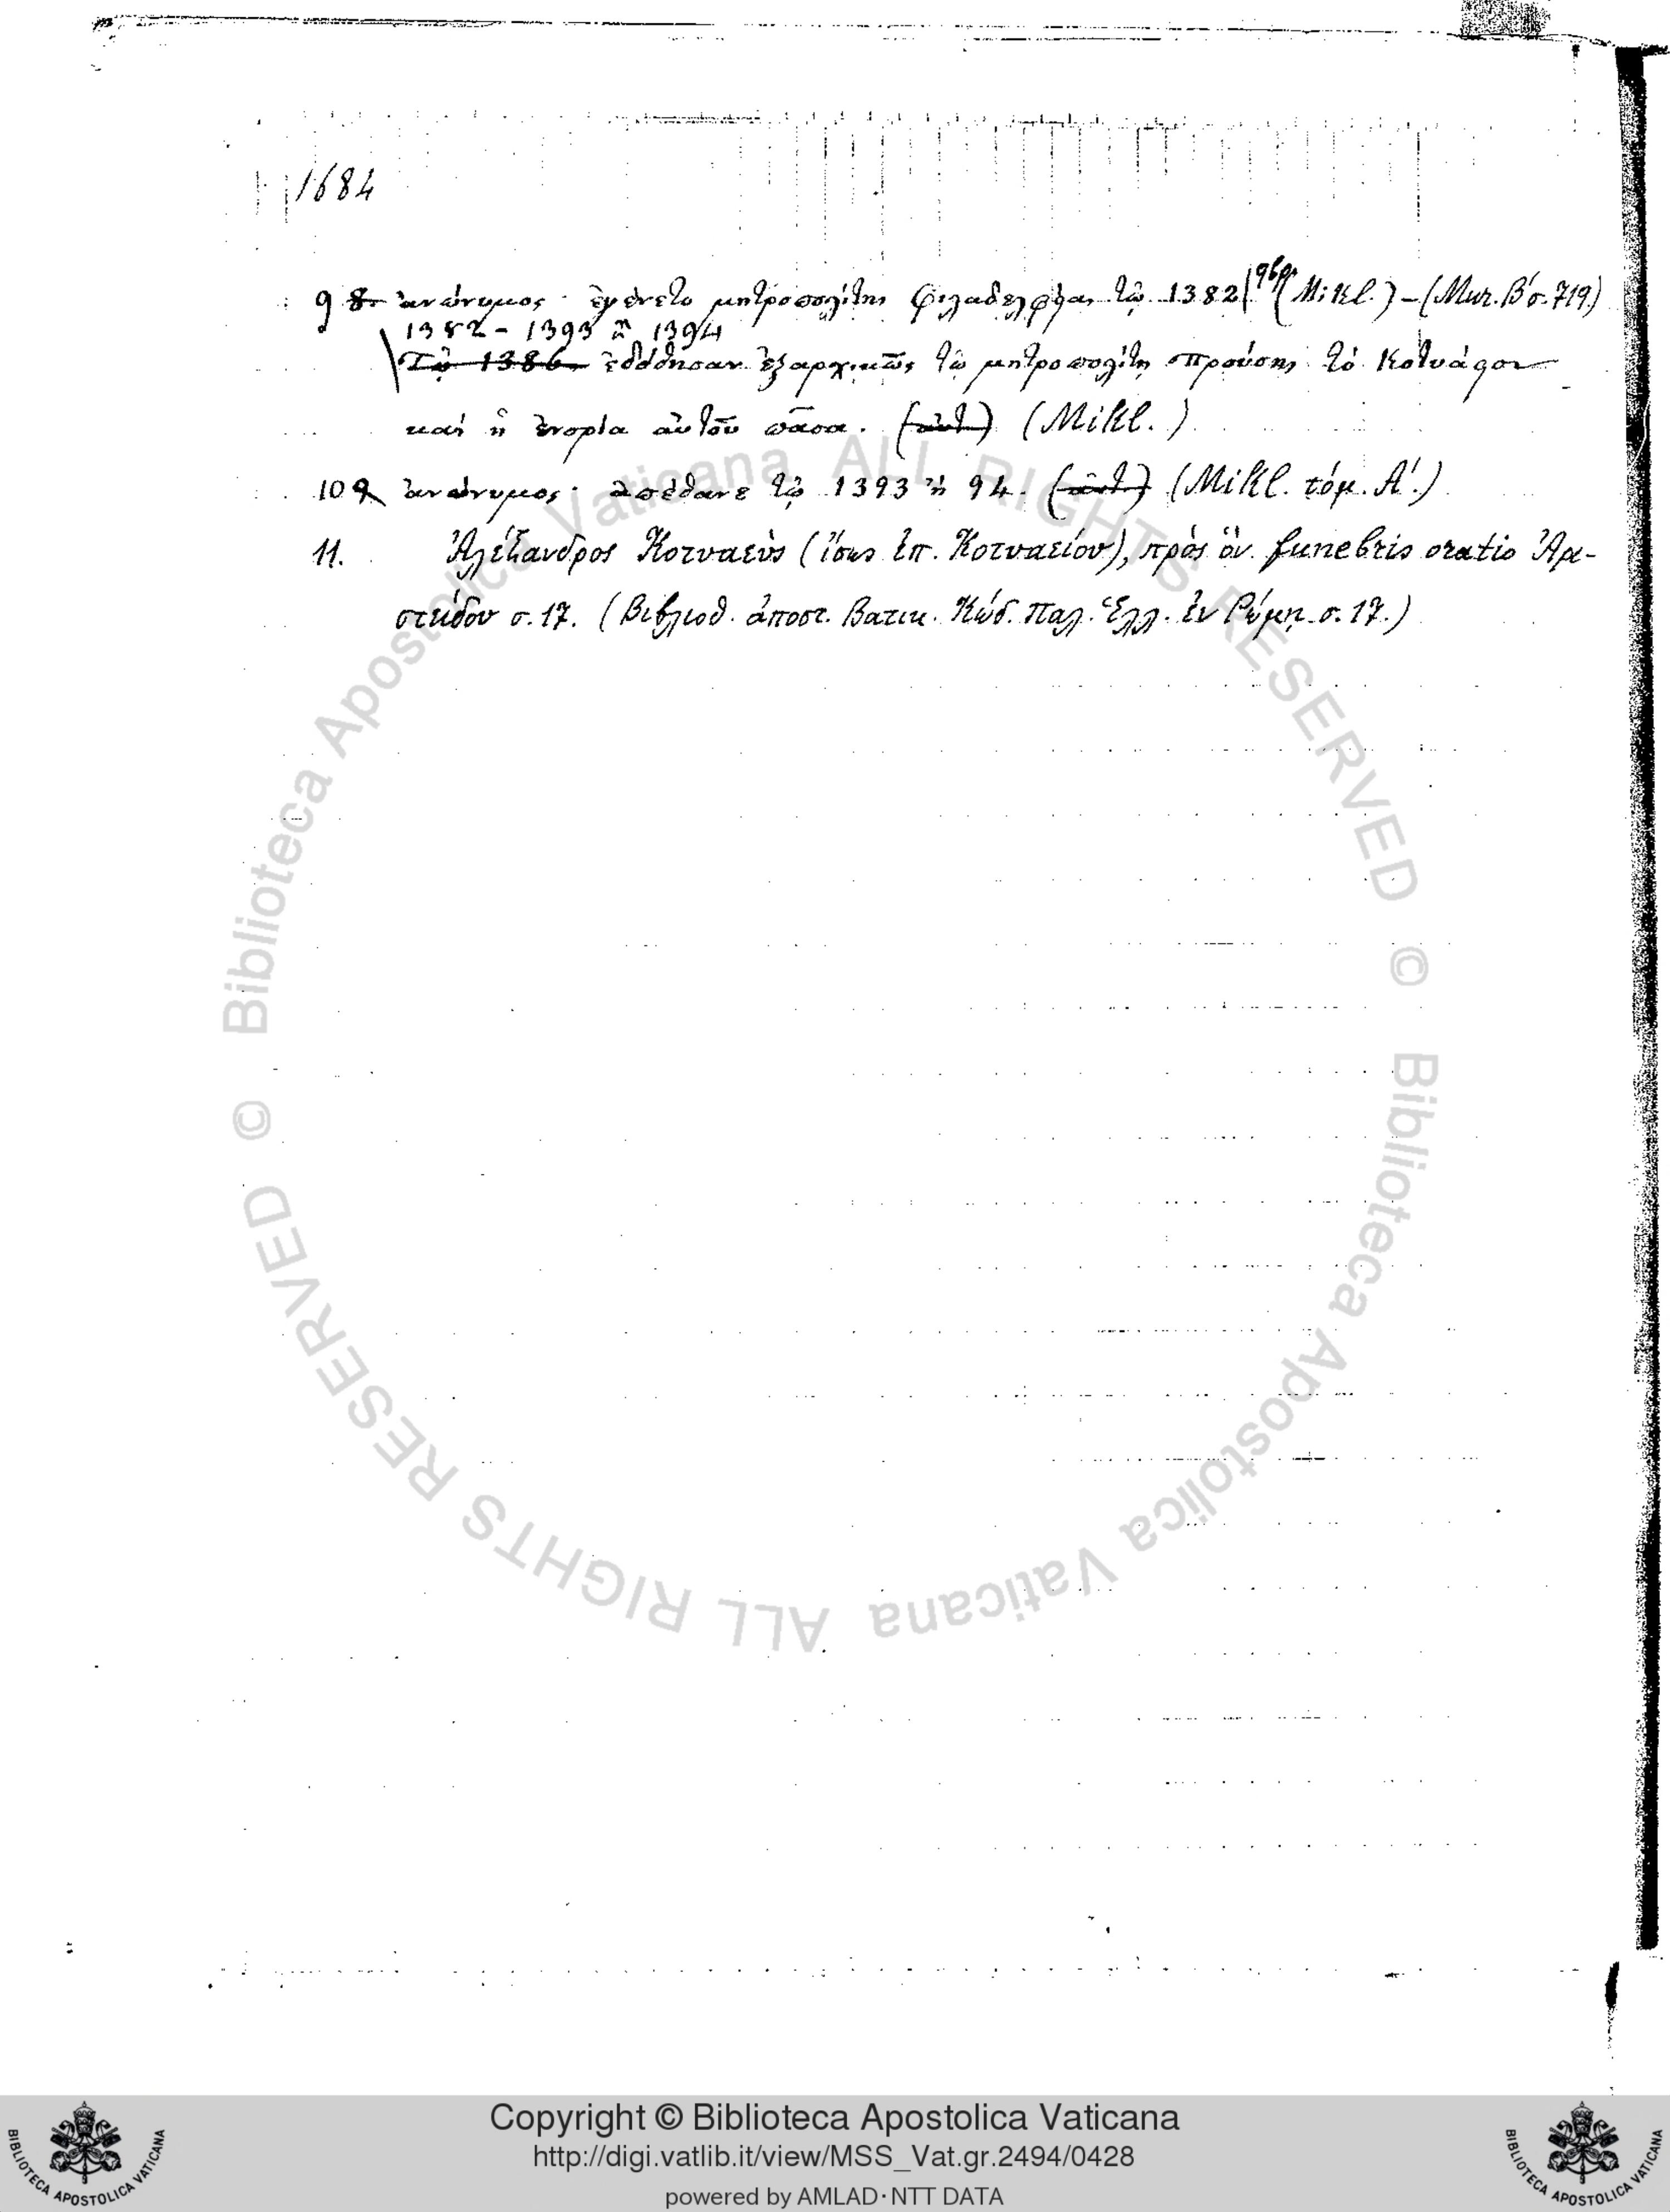 1684
9 8. ἀνώνυμος· ἐγένετο μητροπολίτης Φιλαδελφείας τῷ 1382 (Mikl.) – (Μικ. Β΄ σ. 719.)
1382 – 1393 ἢ 1394
Τῷ 1386 ἐδόθησαν ἐξαρχικῶς τῷ μητροπολίτῃ Προύσης τὸ Κοτυάειον
καὶ ἡ ἐνορία αὐτοῦ πᾶσα. (αὐτ.) (Mikl.)
10 9. ἀνώνυμος· ἀπέθανε τῷ 1393 ἢ 94. (αὐτ.) (Mikl. τόμ. Α΄.)
11. Ἀλέξανδρος Κοτυαεὺς (ἴσως ἐπ. Κοτυαείου), πρὸς ὃν funebris oratio Ἀρι-
στείδου σ. 17. (Βιβλιοθ. ἀποστ. Βατικ. Κώδ. Παλ. Ἑλλ. ἐν Ῥώμῃ σ. 17.)
© Biblioteca Apostolica Vaticana ALL RIGHTS RESERVED
© Biblioteca Apostolica Vaticana ALL RIGHTS RESERVED
Copyright © Biblioteca Apostolica Vaticana
http://digi.vatlib.it/view/MSS_Vat.gr.2494/0428
powered by AMLAD·NTT DATA
BIBLIOTECA APOSTOLICA VATICANA
BIBLIOTECA APOSTOLICA VATICANA